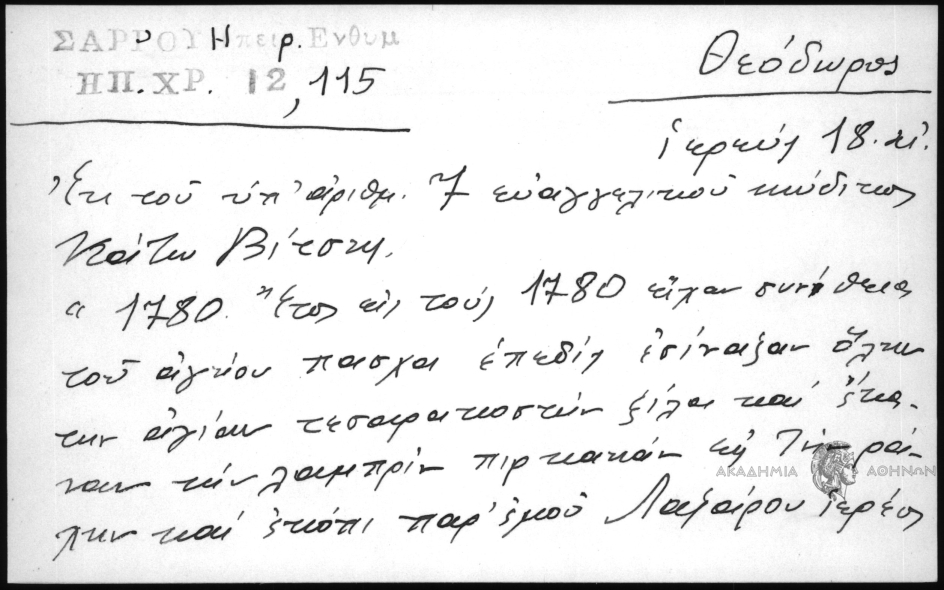 ΣΑΡΡΟΥ Ηπειρ. Ενθυμ
ΗΠ. ΧΡ. 12, 115
Θεόδωρος
ἱερεύς 18. αἰ.
Ἐκ τοῦ ὑπ' ἀριθμ. 7 εὐαγγελικοῦ κώδικος
Κάτω Βίτσης.
" 1780. Ἔτος εἰς τούς 1780 εἶχαν συνήθεια
τοῦ ἁγίου πασχα ἐπεδίς ἐσίναξαν ὅλην
την ἁγίαν τεσαρακοστήν ξίλα καί ἔκα-
ναν τήν λαμπρίν πιρκαιάν
χην καί ἐκόπι παρ' ἐμοῦ Λαζάρου ἱερέος
ΑΚΑΔΗΜΙΑ ΑΘΗΝΩΝ